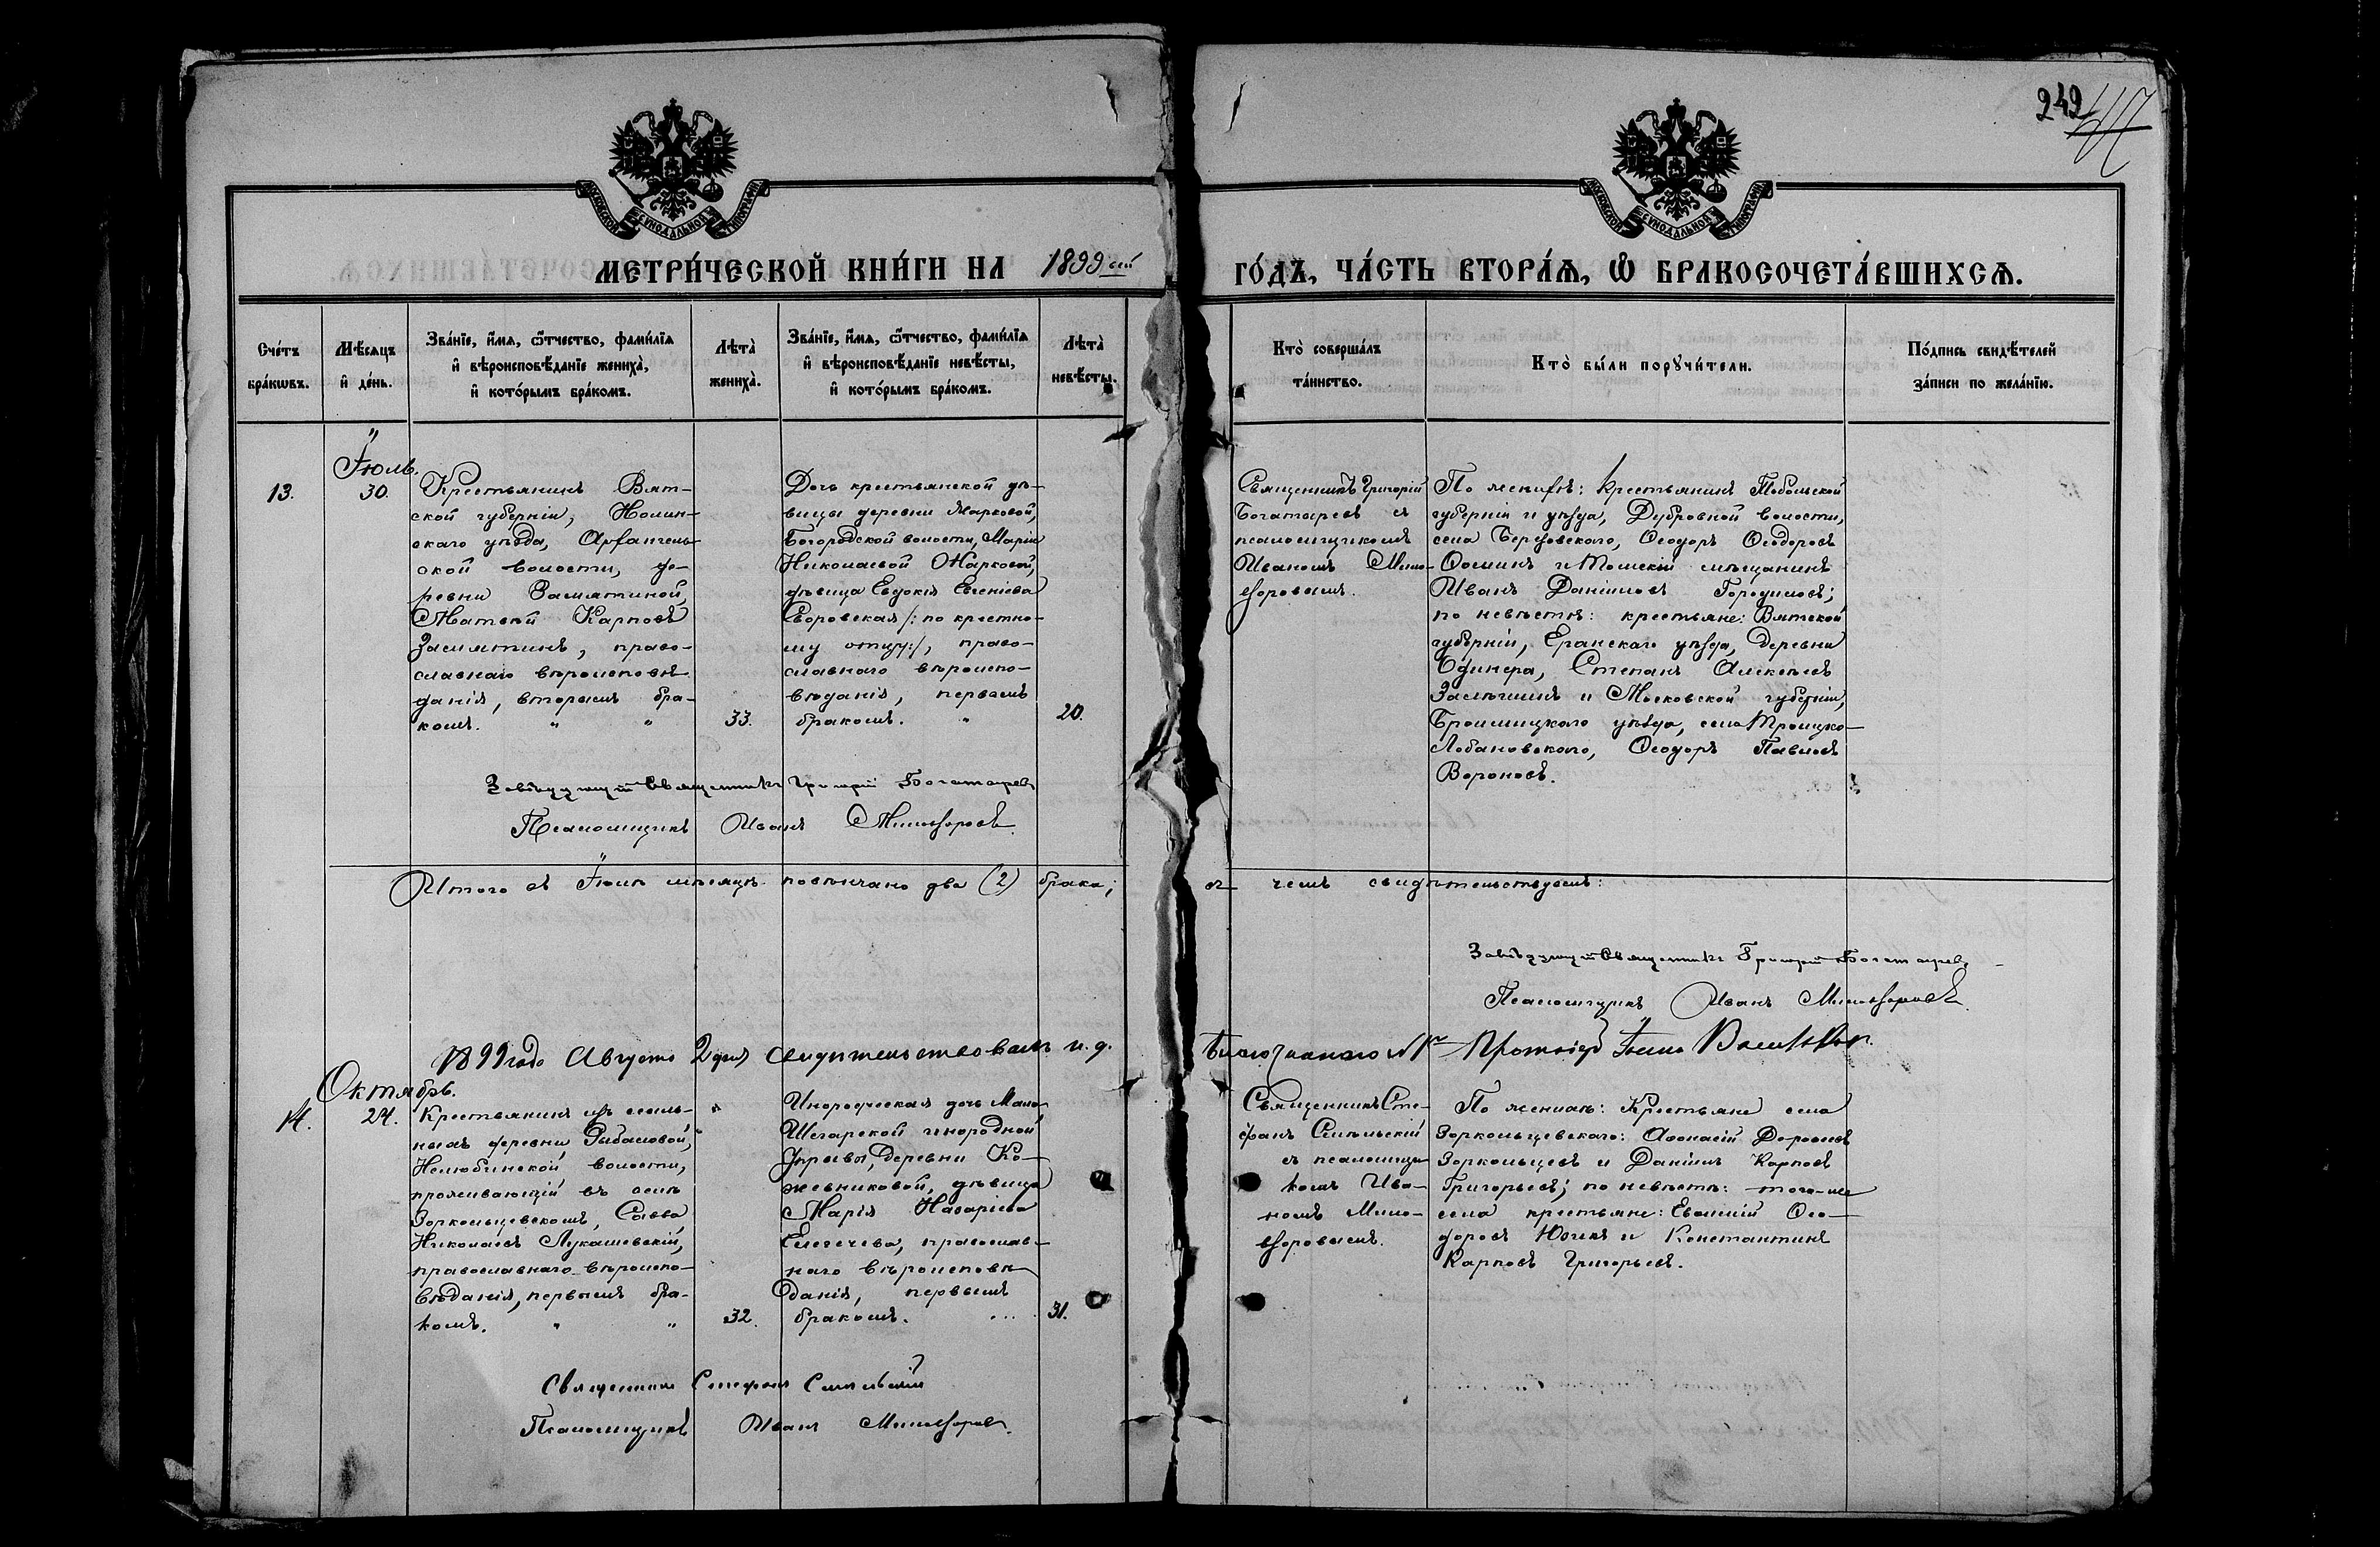 249
МЕТРИ́ЧЕСКОЙ КНИ́ГИ НА 1899 ый ГО́ДЪ, ЧА́СТЬ ВТОРА́Ѧ, Ѡ БРАКОСОЧЕТА́ВШИХСѦ.
Сче́тъ бра́кѡвъ.
Мѣ́сѧцъ и҆ де́нь.
Зва́нїе, и҆́мѧ, ѻ҆́тчество, фами́лїѧ
и҆ вѣроисповѣ́данїе жениха̀,
и҆ кото́рымъ бра́комъ.
Лѣта̀ жениха̀.
Зва́нїе, и҆́мѧ, ѻ҆́тчество, фами́лїѧ
и҆ вѣроисповѣ́данїе невѣ́сты,
и҆ кото́рымъ бра́комъ.
Лѣта̀ невѣ́сты.
Кто̀ соверша́лъ та́инство.
Кто̀ бы́ли порꙋчи́тели.
По́дпись свидѣ́телей
за́писи по жела́нїю.
Іюль.
13.
30.
Крестьянинъ Вят-
ской губерніи, Нолин-
скаго уѣзда, Архангель-
ской волости, де-
ревни Замятиной,
Матвѣй Карповъ
Замятинъ, право-
славнаго вѣроисповѣ-
данія, вторымъ бра-
комъ. " "
33.
Дочь крестьянской дѣ-
вицы деревни Марковой,
Богородской волости, Маріи
Николаевой Марковой,
дѣвица Евдокія Евгеніева
/: по крестно-
му отцу:/, право-
славнаго вѣроиспо-
вѣданія, первымъ
бракомъ. "
20.
Священникъ Григорій
Богатыревъ съ
псаломщикомъ
Иваномъ Мило-
вѣ
По женихѣ: крестьянинъ Тобольской
губерніи и уѣзда, Дубровной волости,
села Березовскаго, Ѳеодоръ Ѳеодоровъ
и Томскій мѣщанинъ
Иванъ Даніиловъ Городиловъ;
по невѣстѣ: крестьяне: Вятской
губерніи, Яранскаго уѣзда, деревни
Степанъ Алексѣевъ
и Московской губерніи,
Бронницкаго уѣзда, села Троицко-
Лобановскаго, Ѳеодоръ Павловъ
Вороновъ.
Завѣдующій Священникъ Григорій Богатыревъ
Псаломщикъ Иванъ
Итого въ Іюлѣ мѣсяцѣ повѣнчано два (2) брака; въ чемъ свидѣтельствуемъ:
Завѣдующій Священникъ Григорій Богатыревъ
Псаломщикъ Иванъ
1899 года Августа 2 дня свидѣтельствовалъ и. д. Благочиннаго № Протоіерей
Октябрь.
14.
24.
Крестьянинъ изъ ссыль-
ныхъ деревни Рыбаловой,
Нелюбинской волости,
проживающій въ селѣ
Зоркольцевскомъ, Савва
Николаевъ Лукашевскій,
православнаго вѣроиспо-
вѣданія, первымъ бра-
комъ. " "
32.
Инородческая дочь Мало-
Шегарской инородной
управы, деревни Ко-
жевниковой, дѣвица
Марія Назаріева
Елегечева, православ-
наго вѣроисповѣ-
данія, первымъ
бракомъ.
31.
Священникъ Сте-
фанъ
съ псаломщи-
комъ Ива-
номъ Мило-
По женихѣ: Крестьяне села
Зоркольцевскаго: Аѳонасій Дороѳеевъ
Зоркольцевъ и Даніилъ Карповъ
Григорьевъ; по невѣстѣ: того-же
села крестьяне: Евѳимій Ѳео-
доровъ и Константинъ
Карповъ Григорьевъ.
Священникъ Стефанъ
Псаломщикъ Иванъ